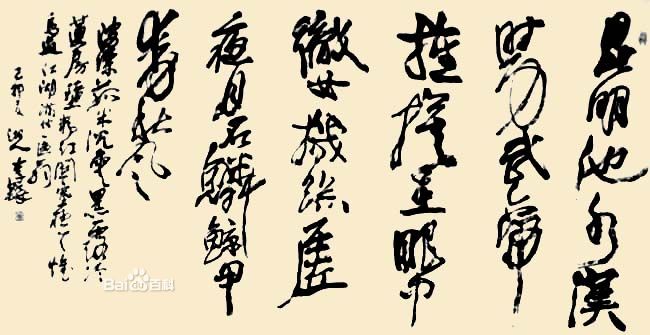 昆明池水漢
時功武帝
旌旗在眼中
織女機絲虛
夜月石鱗鯨甲
動秋風
波漂菰米沉雲黑露冷
蓮房墜粉紅關塞極天惟
鳥道江湖滿地一漁翁
己卯夏 李鐸
Bai百科